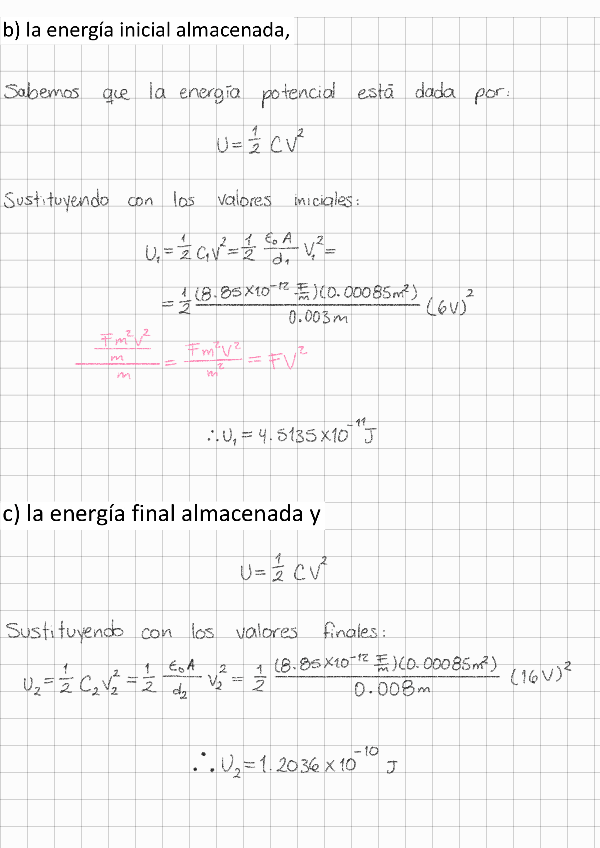 b) la energía inicial almacenada,
Sabemos que la energía potencial está dada por:
U = 1/2 CV²
Sustituyendo con los valores iniciales:
U₁ = 1/2 C₁V² = 1/2 ε₀A/d₁ V₁² =
= 1/2 (8.85×10⁻¹² F/m)(0.00085m²)/0.003m (6V)²
Fm²V²/m/m = Fm²V²/m² = FV²
∴ U₁ = 4.5135×10⁻¹¹ J
c) la energía final almacenada y
U = 1/2 CV²
Sustituyendo con los valores finales:
U₂ = 1/2 C₂V₂² = 1/2 ε₀A/d₂ V₂² = 1/2 (8.85×10⁻¹² F/m)(0.00085m²)/0.008m (16V)²
∴ U₂ = 1.2036×10⁻¹⁰ J